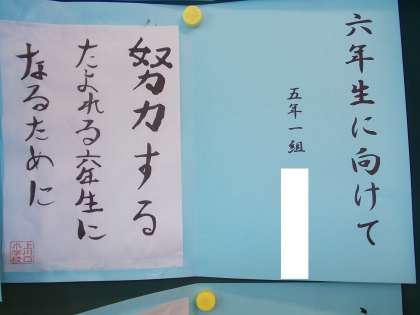 六年生に向けて
五年一組
努力する
たよれる六年生に
なるために
上川口
小学校